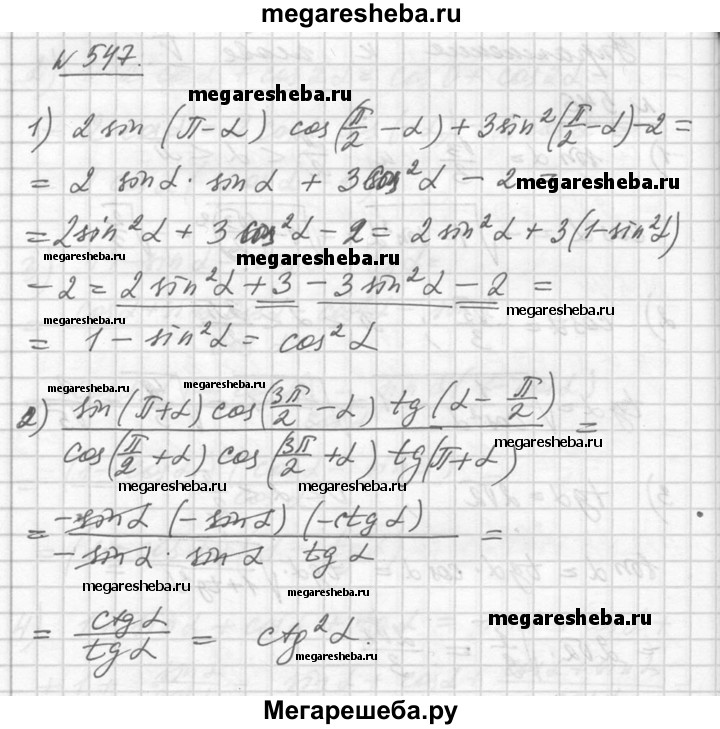 megaresheba.ru
N 547.
megaresheba.ru megaresheba.ru
1) 2 sin (π-α) cos(π/2 - α) + 3sin²(π/2 - α) - 2 =
= 2 sinα · sinα + 3cos²α - 2 = megaresheba.ru
= 2sin²α + 3cos²α - 2 = 2sin²α + 3(1-sin²α)
megaresheba.ru megaresheba.ru megaresheba.ru
- 2 = 2sin²α + 3 - 3sin²α - 2 =
megaresheba.ru
= 1 - sin²α = cos²α
megaresheba.ru megaresheba.ru
2) sin(π+α) cos(3π/2 - α) tg(α - π/2) / cos(π/2 + α) cos(3π/2 + α) tg(π+α) =
megaresheba.ru
megaresheba.ru megaresheba.ru
= -sinα (-sinα) (-ctgα) / -sinα · sinα tgα =
megaresheba.ru megaresheba.ru
= ctgα / tgα = ctg²α.
megaresheba.ru
megaresheba.ru megaresheba.ru
Мегарешеба.ру